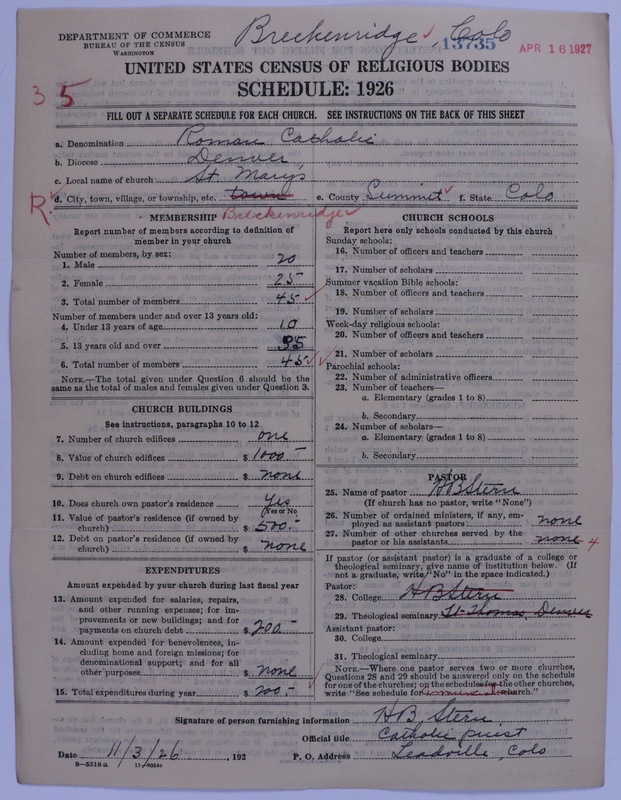 Breckenridge, Colo
DEPARTMENT OF COMMERCE
BUREAU OF THE CENSUS
WASHINGTON
13735
APR 16 1927
UNITED STATES CENSUS OF RELIGIOUS BODIES
SCHEDULE: 1926
3 5
FILL OUT A SEPARATE SCHEDULE FOR EACH CHURCH. SEE INSTRUCTIONS ON THE BACK OF THIS SHEET
a. Denomination Roman Catholic
b. Diocese Denver
c. Local name of church St. Mary's
R. d. City, town, village, or township, etc. town e. County Summit f. State Colo
Breckenridge
MEMBERSHIP
Report number of members according to definition of
member in your church
Number of members, by sex:
1. Male 20
2. Female 25
3. Total number of members 45
Number of members under and over 13 years old:
4. Under 13 years of age 10
5. 13 years old and over 35
6. Total number of members 45
NOTE.—The total given under Question 6 should be the
same as the total of males and females given under Question 3.
CHURCH BUILDINGS
See instructions, paragraphs 10 to 12
7. Number of church edifices one
8. Value of church edifices $ 1000.-
9. Debt on church edifices $ none
10. Does church own pastor's residence Yes
(Yes or No)
11. Value of pastor's residence (if owned by
church) $ 500.-
12. Debt on pastor's residence (if owned by
church) $ none
EXPENDITURES
Amount expended by your church during last fiscal year
13. Amount expended for salaries, repairs,
and other running expenses; for im-
provements or new buildings; and for
payments on church debt $ 200.-
14. Amount expended for benevolences, in-
cluding home and foreign missions; for
denominational support; and for all
other purposes $ none
15. Total expenditures during year $ 200.-
CHURCH SCHOOLS
Report here only schools conducted by this church
Sunday schools:
16. Number of officers and teachers
17. Number of scholars
Summer vacation Bible schools:
18. Number of officers and teachers
19. Number of scholars
Week-day religious schools:
20. Number of officers and teachers
21. Number of scholars
Parochial schools:
22. Number of administrative officers
23. Number of teachers—
a. Elementary (grades 1 to 8)
b. Secondary
24. Number of scholars—
a. Elementary (grades 1 to 8)
b. Secondary
PASTOR
25. Name of pastor H B Stern
(If church has no pastor, write "None")
26. Number of ordained ministers, if any, em-
ployed as assistant pastors none
27. Number of other churches served by the
pastor or his assistants none 4
If pastor (or assistant pastor) is a graduate of a college or
theological seminary, give name of institution below. (If
not a graduate, write "No" in the space indicated.)
Pastor:
28. College H B Stern
29. Theological seminary St. Thomas, Denver
Assistant pastor:
30. College
31. Theological seminary
NOTE.—Where one pastor serves two or more churches,
Questions 28 and 29 should be answered only on the schedule
for one of the churches; on the schedules for the other churches,
write "See schedule for church."
Signature of person furnishing information H B. Stern
Official title Catholic priest
Date 11/3/26, 192 P. O. Address Leadville, Colo
8—5518 a